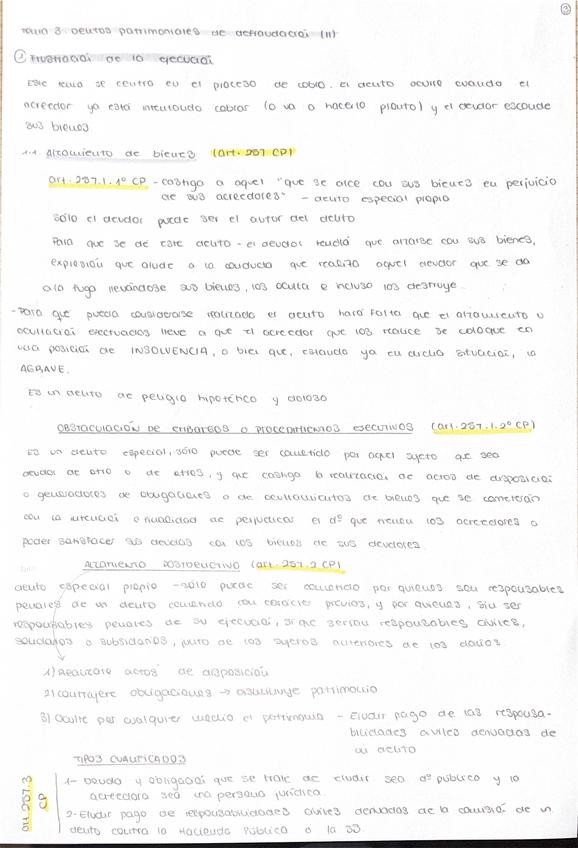 2
Tema 8. Delitos patrimoniales de defraudación (II)
① Frustración de la ejecución
Este tema se centra en el proceso de cobro. El delito ocurre cuando el
acreedor ya está intentando cobrar (o va a hacerlo pronto) y el deudor esconde
sus bienes
1.1. Alzamiento de bienes (art. 257 CP)
art. 257.1.1º CP - castiga a aquel "que se alce con sus bienes en perjuicio
de sus acreedores" - delito especial propio
Sólo el deudor puede ser el autor del delito
Para que se dé este delito - el deudor tendrá que alzarse con sus bienes,
expresión que alude a la conducta que realiza aquel deudor que se da
a la fuga llevándose sus bienes, los oculta e incluso los destruye.
- Para que pueda considerarse realizado el delito hará falta que el alzamiento u
ocultación efectuados lleve a que el acreedor que los realice se coloque en
una posición de INSOLVENCIA, o bien que, estando ya en dicha situación, la
AGRAVE.
Es un delito de peligro hipotético y doloso
OBSTACULIZACIÓN DE EMBARGOS O PROCEDIMIENTOS EJECUTIVOS (art. 257.1.2º CP)
Es un delito especial, sólo puede ser cometido por aquel sujeto que sea
deudor de otro o de otros, y que castiga la realización de actos de disposición
o generadores de obligaciones o de ocultamientos de bienes que se cometerán
con la intención o finalidad de perjudicar el dº que tienen los acreedores a
poder satisfacer sus deudas con los bienes de sus deudores.
ALZAMIENTO POSTDELICTIVO (art. 257.2 CP)
delito especial propio - sólo puede ser cometido por quienes son responsables
penales de un delito cometido con carácter previos, y por quienes, sin ser
responsables penales de su ejecución, sí que serían responsables civiles,
solidarios o subsidarios, junto de los sujetos anteriores de los daños.
1) Realizare actos de disposición
2) contrajere obligaciones → disminuye patrimonio
3) Oculte por cualquier medio el patrimonio - Eludir pago de las responsa-
bilidades civiles derivadas de
un delito
TIPOS CUALIFICADOS
art. 257.3 CP
1- Deuda y obligación que se trate de eludir sea dº público y la
acreedora sea una persona jurídica.
2- Eludir pago de responsabilidades civiles derivadas de la comisión de un
delito contra la Hacienda Pública o la SS.